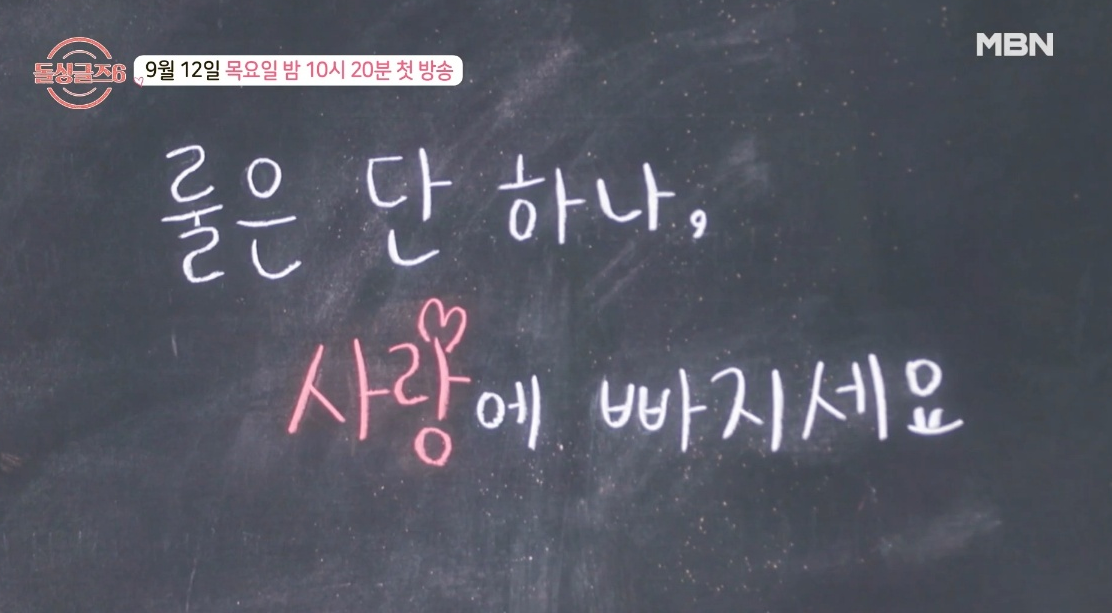 돌싱글즈6
9월 12일 목요일 밤 10시 20분 첫 방송
MBN
룰은 단 하나,
사랑에 빠지세요